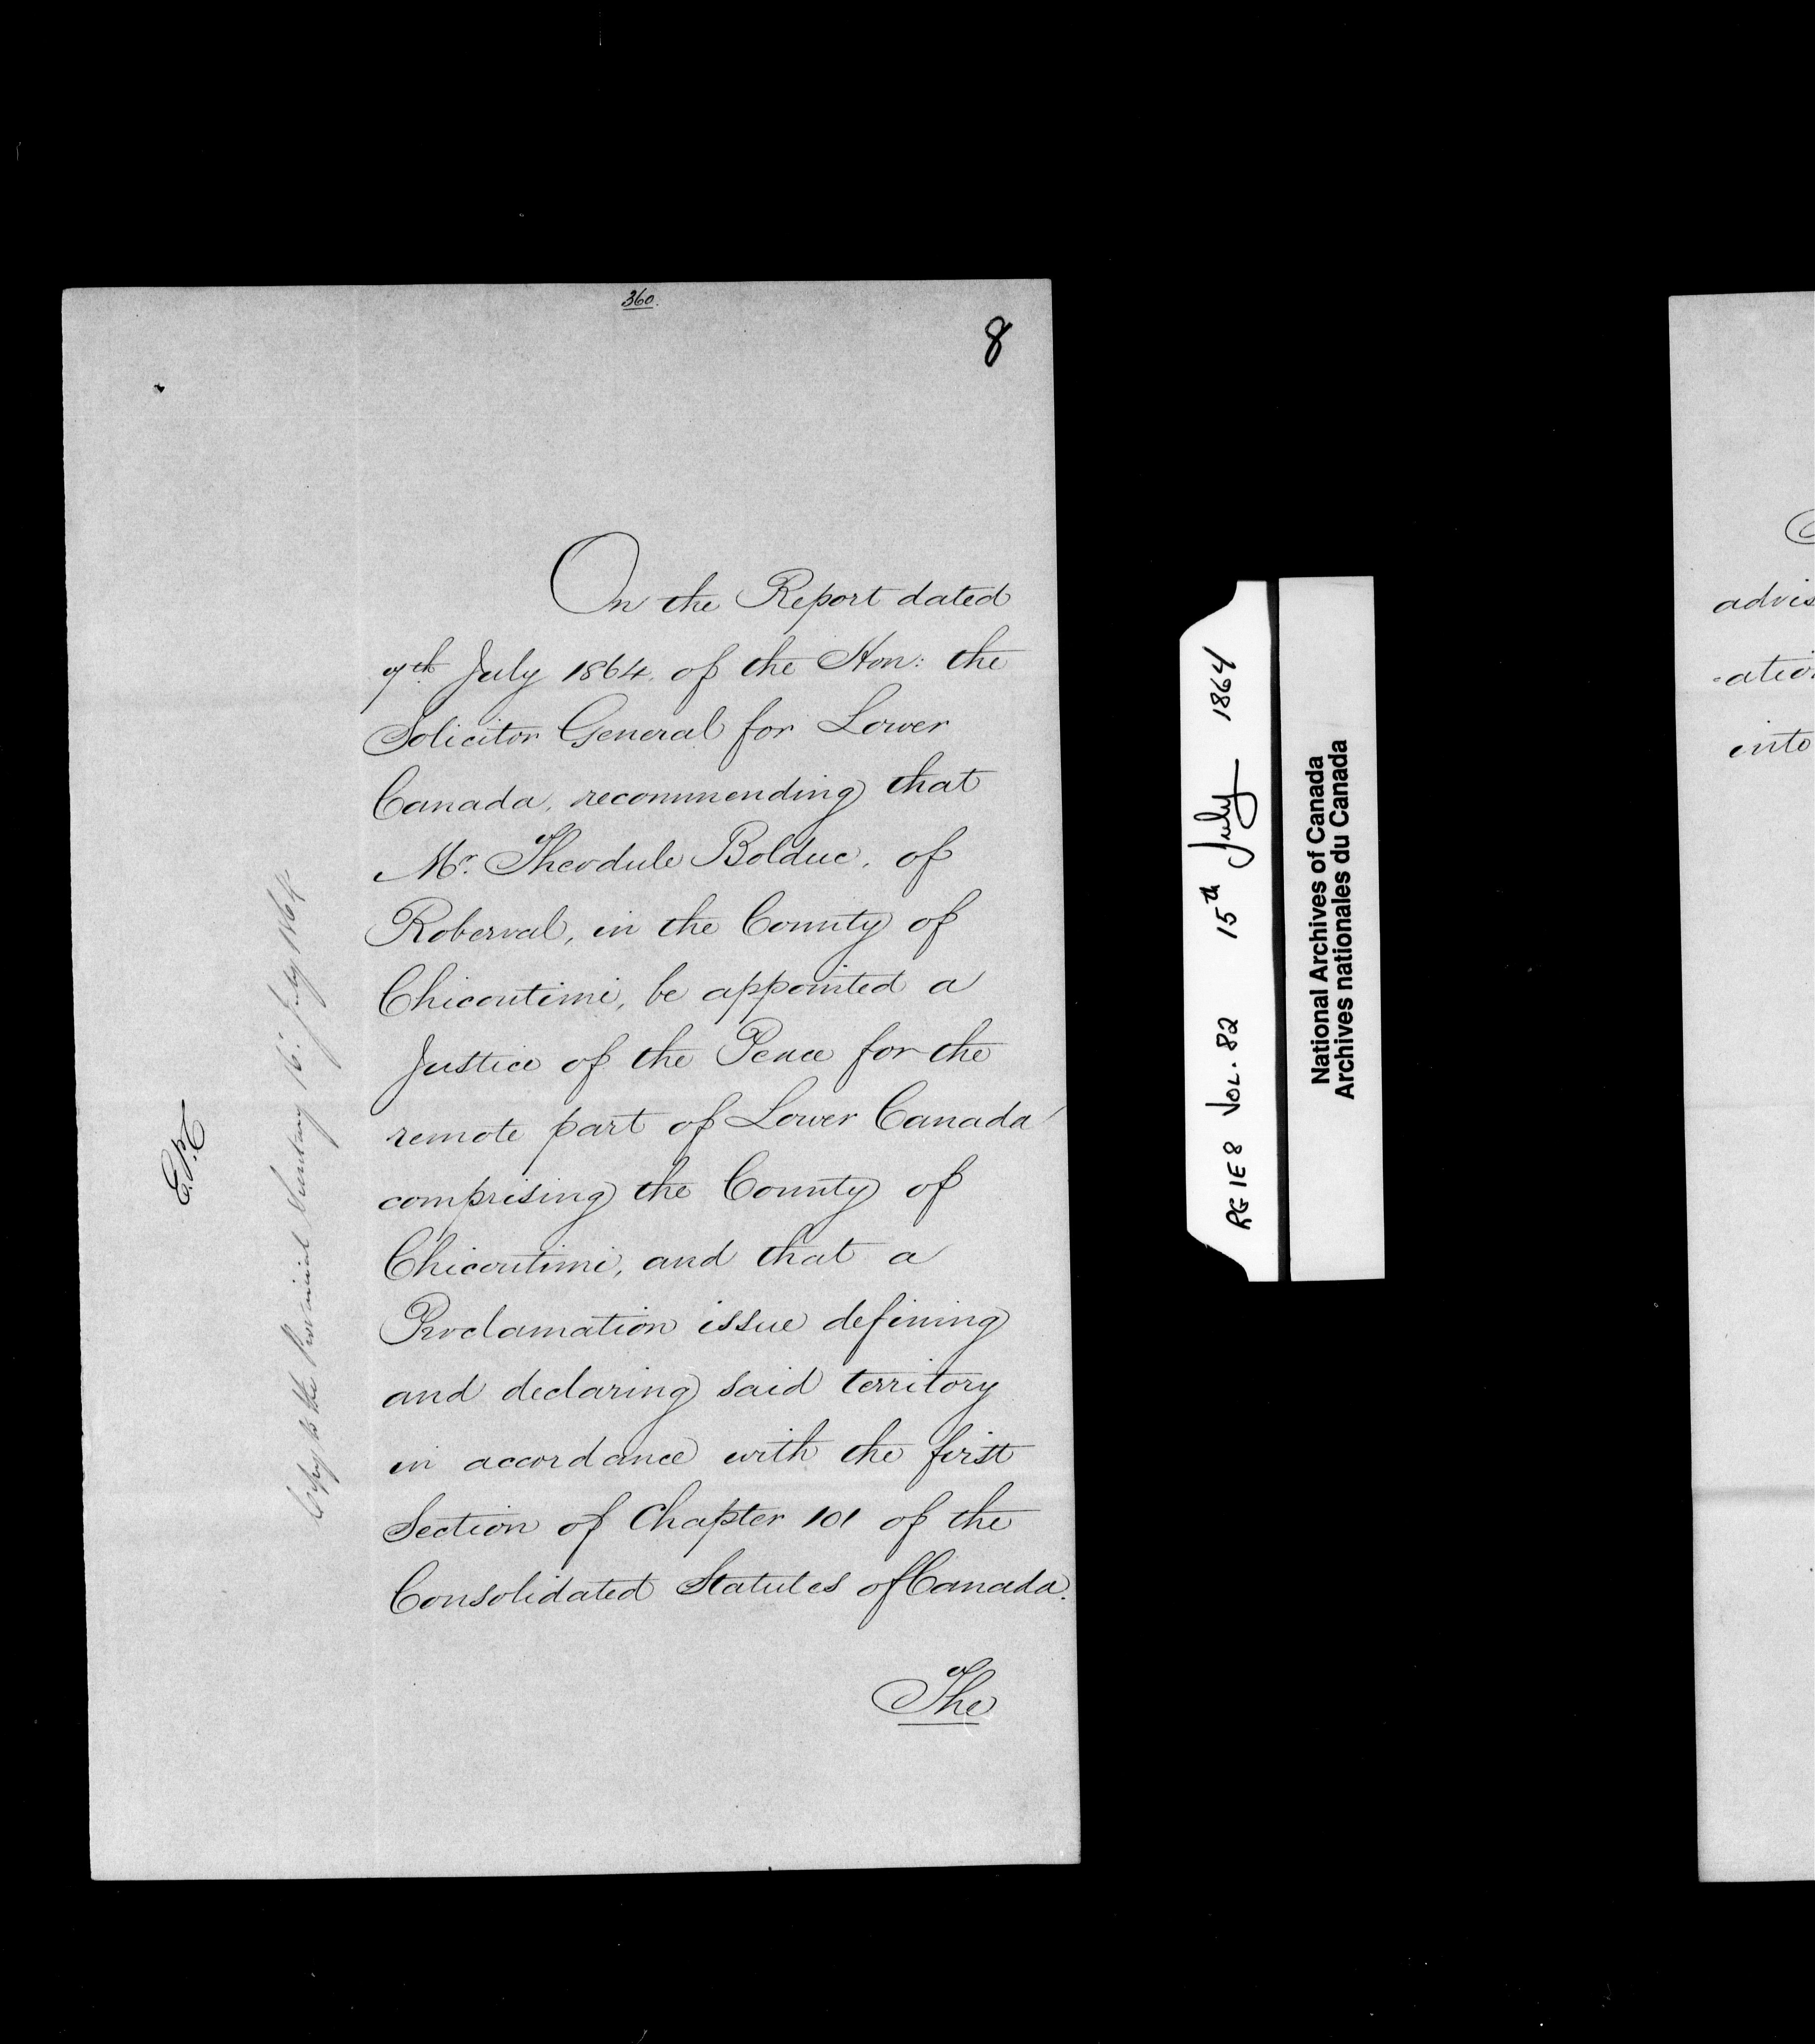 360.
8
On the Report dated
7th July 1864, of the Hon: the
Solicitor General for Lower
Canada, recommending that
Mr. Theodule Bolduc, of
Roberval, in the County of
Chicoutimi, be appointed a
Justice of the Peace for the
remote part of Lower Canada
comprising the County of
Chicoutimi, and that a
Proclamation issue defining
and declaring said territory
in accordance with the first
Section of Chapter 101 of the
Consolidated Statutes of Canada.
The
Copy to the Provincial Secretary 16. July 1864
RG 1E8 VOL. 82 15th July 1864
National Archives of Canada
Archives nationales du Canada
advis
-atio
into